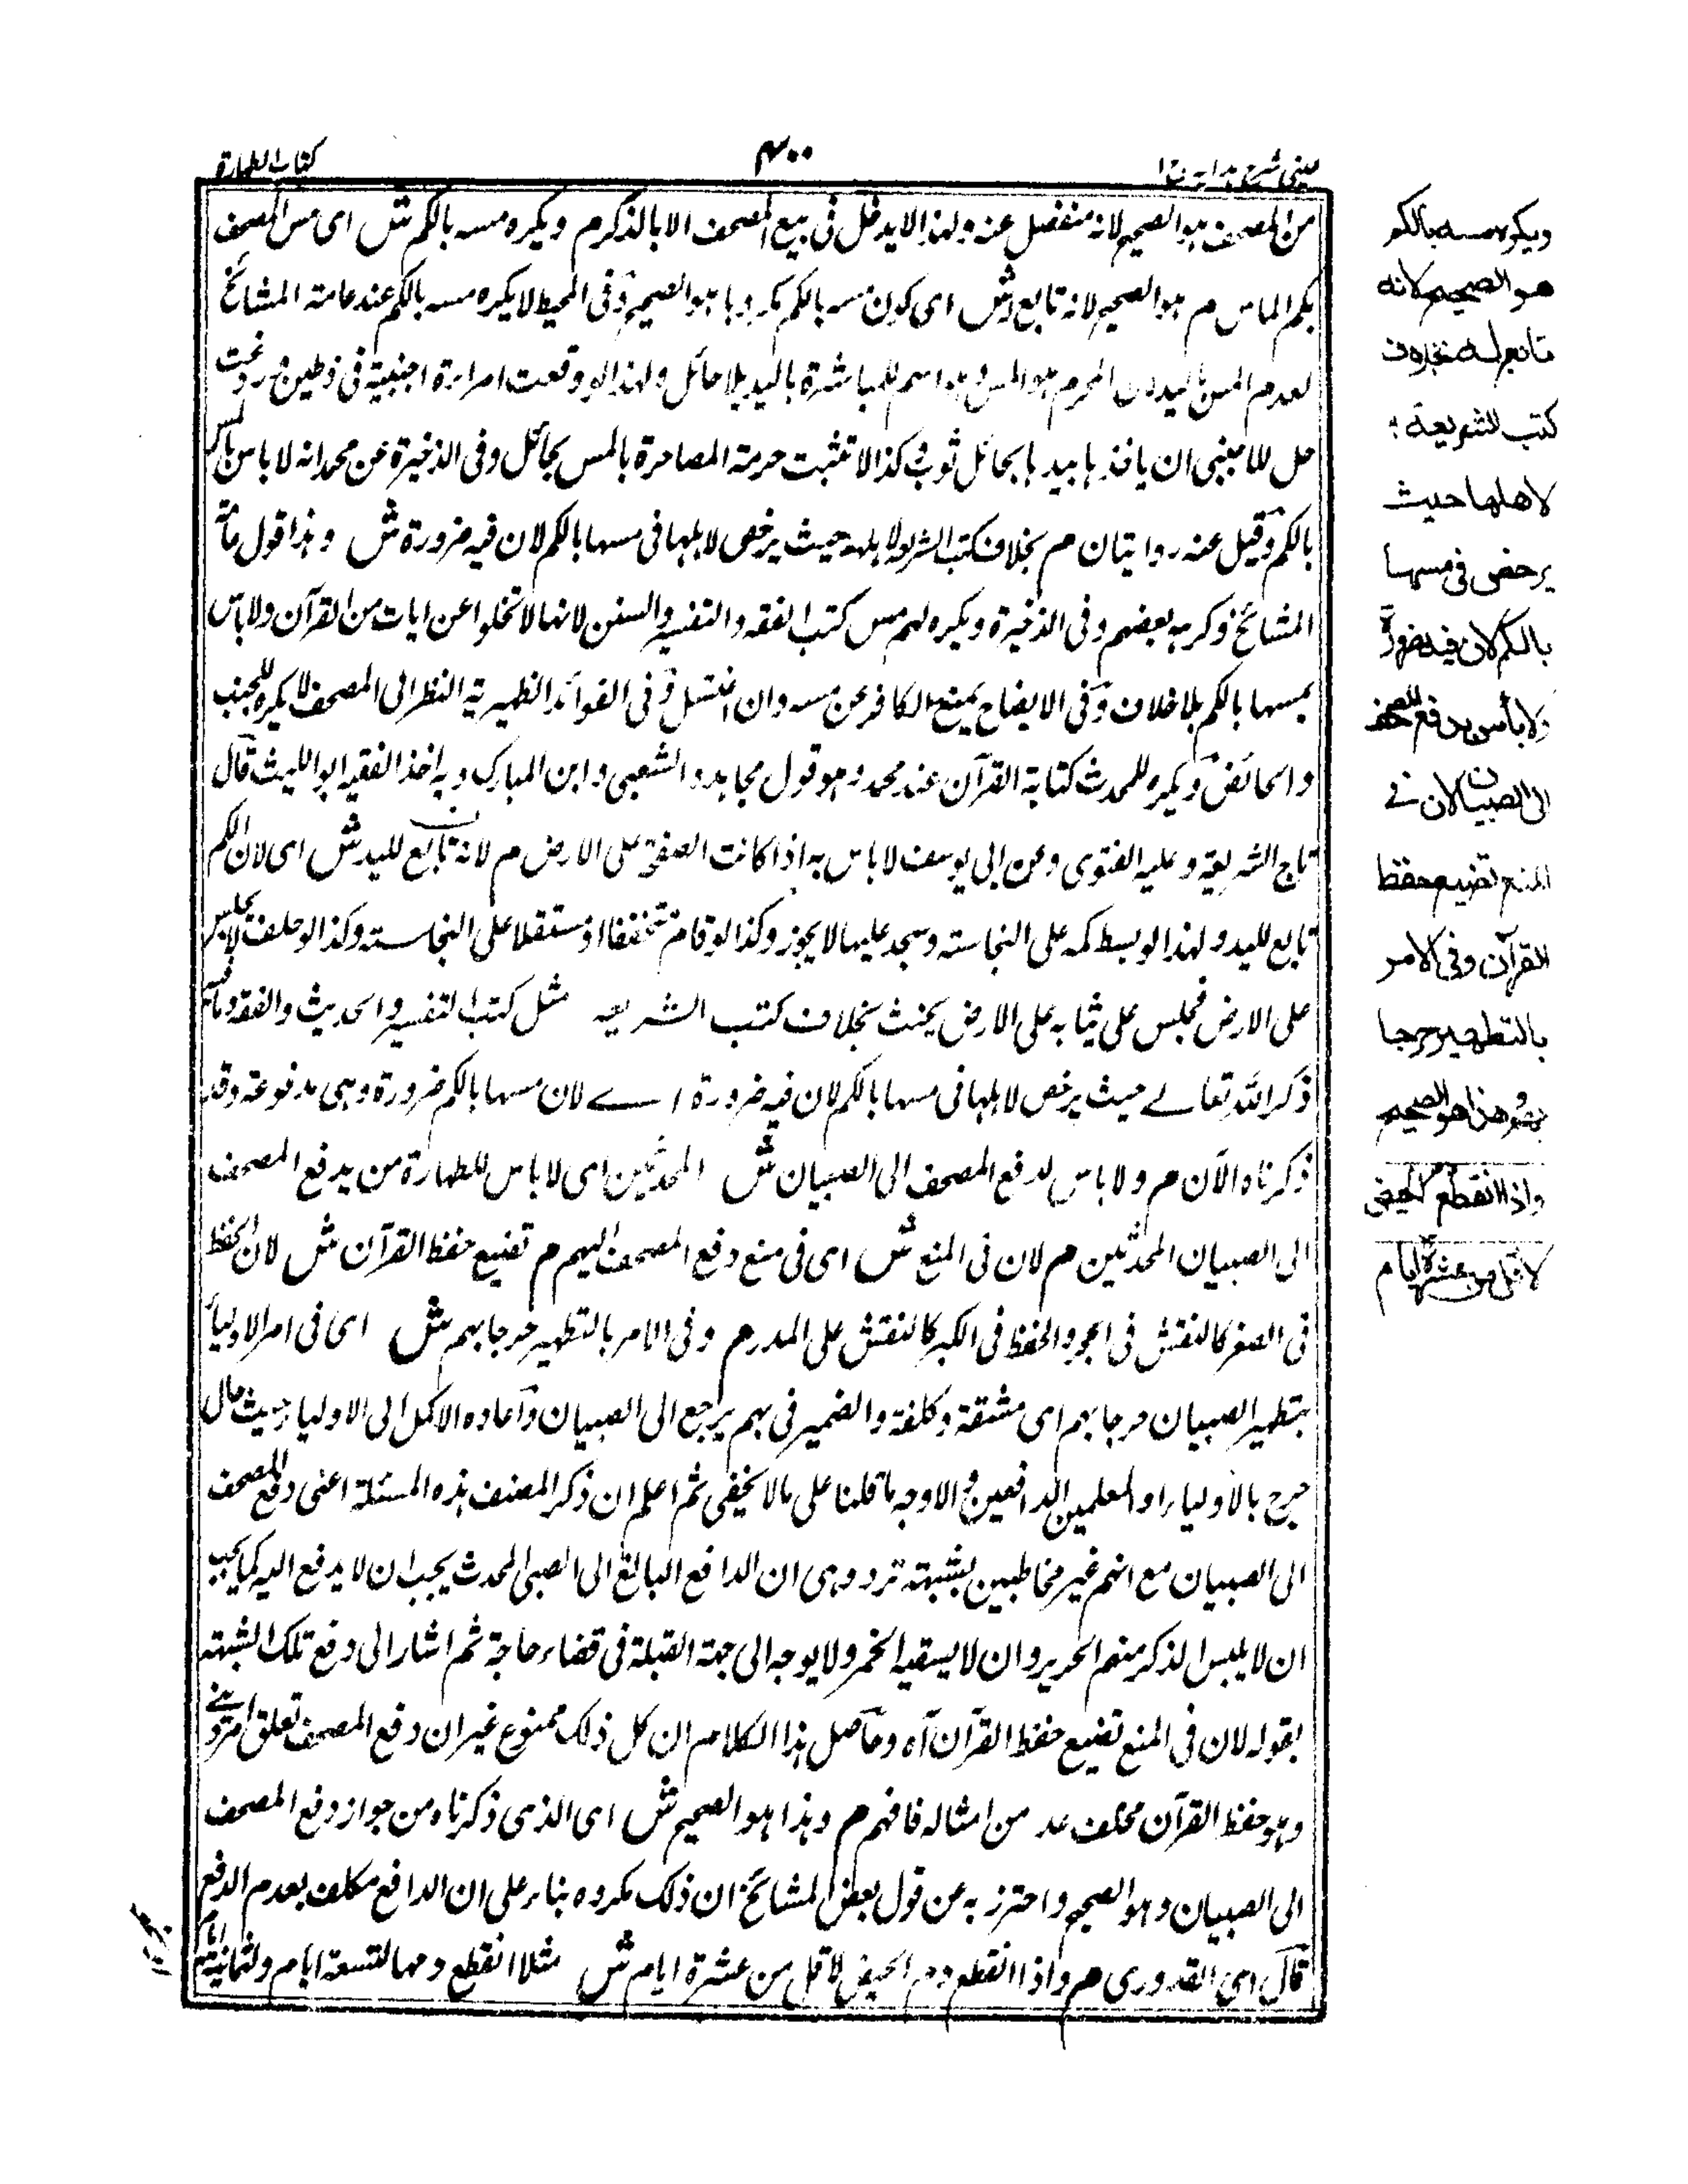 عینی شرح ہدایہ ج ١
٤٠٠
كتاب الطهارة
من المصحف هو الصحيح لانه منفصل عنه ولهذا لا يدخل فى بيع المصحف الا بالذكر م ويكره مسه بالكم ش اى مس المصحف
بكم الماس م هو الصحيح لانه تابع له ش اى كون مسه بالكم مكروها هو الصحيح وفى المحيط لا يكره مسه بالكم عند عامة المشائخ
لعدم المس باليد لان المحرم هو المس وهو اسم للمباشرة باليد بلا حائل ولهذا لو وقعت امراءة اجنبية فى طين وردغت
حل للاجنبى ان ياخذ بيدها بحائل ثوب وكذا لا تثبت حرمة المصاهرة بالمس بحائل وفى الذخيرة عن محمد انه لا باس بالمس
بالكم وقيل عنه روايتان م بخلاف كتب الشريعة لاهلها حيث يرخص لاهلها فى مسها بالكم لان فيه ضرورة ش وهذا قول عامة
المشائخ وكرهه بعضهم وفى الذخيرة ويكره لهم مس كتب الفقه والتفسير والسنن لانها لا تخلوا عن ايات من القرآن ولا باس
بمسها بالكم بلا خلاف وفى الايضاح يمنع الكافر عن مسه وان اغتسل وفى الفوائد الظهيرية النظر الى المصحف لا يكره للجنب
والحائض ويكره للمحدث كتابة القرآن عند محمد وهو قول مجاهد والشعبى وابن المبارك وبه اخذ الفقيه ابو الليث قال
تاج الشريعة وعليه الفتوى وعن ابى يوسف لا باس به اذا كانت الصفحة على الارض م لانه تابع لليد ش اى لان الكم
تابع لليد ولهذا لو بسط كمه على النجاسة وسجد عليها لا يجوز وكذا لو قام متخففا او منتعلا على النجاسة وكذا لو حلف لا يجلس
على الارض فجلس على ثيابه على الارض يحنث بخلاف كتب الشريعه مثل كتب التفسير والحديث والفقه وما فيه
ذكر الله تعالے حيث يرخص لاهلها فى مسها بالكم لان فيه ضرورة اے لان مسها بالكم ضرورة وهى مدفوعة وقد
ذكرناه الآن م ولا باس لدفع المصحف الى الصبيان ش المحدثين اى لا باس للطهارة من يدفع المصحف
الى الصبيان المحدثين م لان فى المنع ش اى فى منع دفع المصحف اليهم م تضييع حفظ القرآن ش لان الحفظ
فى الصغر كالنقش فى الحجر والحفظ فى الكبر كالنقش على المدر م وفى الامر بالتطهير حرجا بهم ش اى فى امر الاولياء
بتطهير الصبيان حرجا بهم اى مشقة وكلفة والضمير فى بهم يرجع الى الصبيان وآعاده الاكمل الى الاولياء حيث قال
حرج بالاولياء او المعلمين الدافعين والاوجه ما قلنا على مالا يخفى ثم اعلم ان ذكر المصنف هذه المسئلة اعنى دفع المصحف
الى الصبيان مع انهم غير مخاطبين لشبهة ترد وهى ان الدافع البالغ الى الصبى المحدث يجب ان لا يدفع اليه كما يجب
ان لا يلبس الذكر منهم الحرير وان لا يسقيه الخمر ولا يوجه الى جهة القبلة فى قضاء حاجة ثم اشار الى دفع تلك الشبهة
بقوله لان فى المنع تضييع حفظ القرآن آه وحاصل هذا الكلام ان كل ذلك ممنوع غير ان دفع المصحف تعلق امر دينے
وهو حفظ القرآن من امثاله فافهم م وهذا هو الصحيح ش اى الذى ذكرناه من جواز دفع المصحف
الى الصبيان وهو الصحيح واحترز به عن قول بعض المشائخ ان ذلك مكروه بناء على ان الدافع مكلف بعدم الدفع
قال اى القدورى م واذا انقطع دم الحيض لاقل من عشرة ايام ش مثلا انقطع دمها لتسعة ايام ولثمانية ايام
ويكره مسه بالكم
هو الصحيح لانه
تابع له بخلاف
كتب الشريعة
لاهلها حيث
يرخص فى مسها
بالكم لان فيه ضرورة
ولا بأس بدفع المصحف
الى الصبيان لان فے
المنع تضييع حفظ
القرآن وفى الامر
بالتطهير حرجا
بهم وهذا هو الصحيح
واذا انقطع دم الحيض
لاقل من عشرة ايام